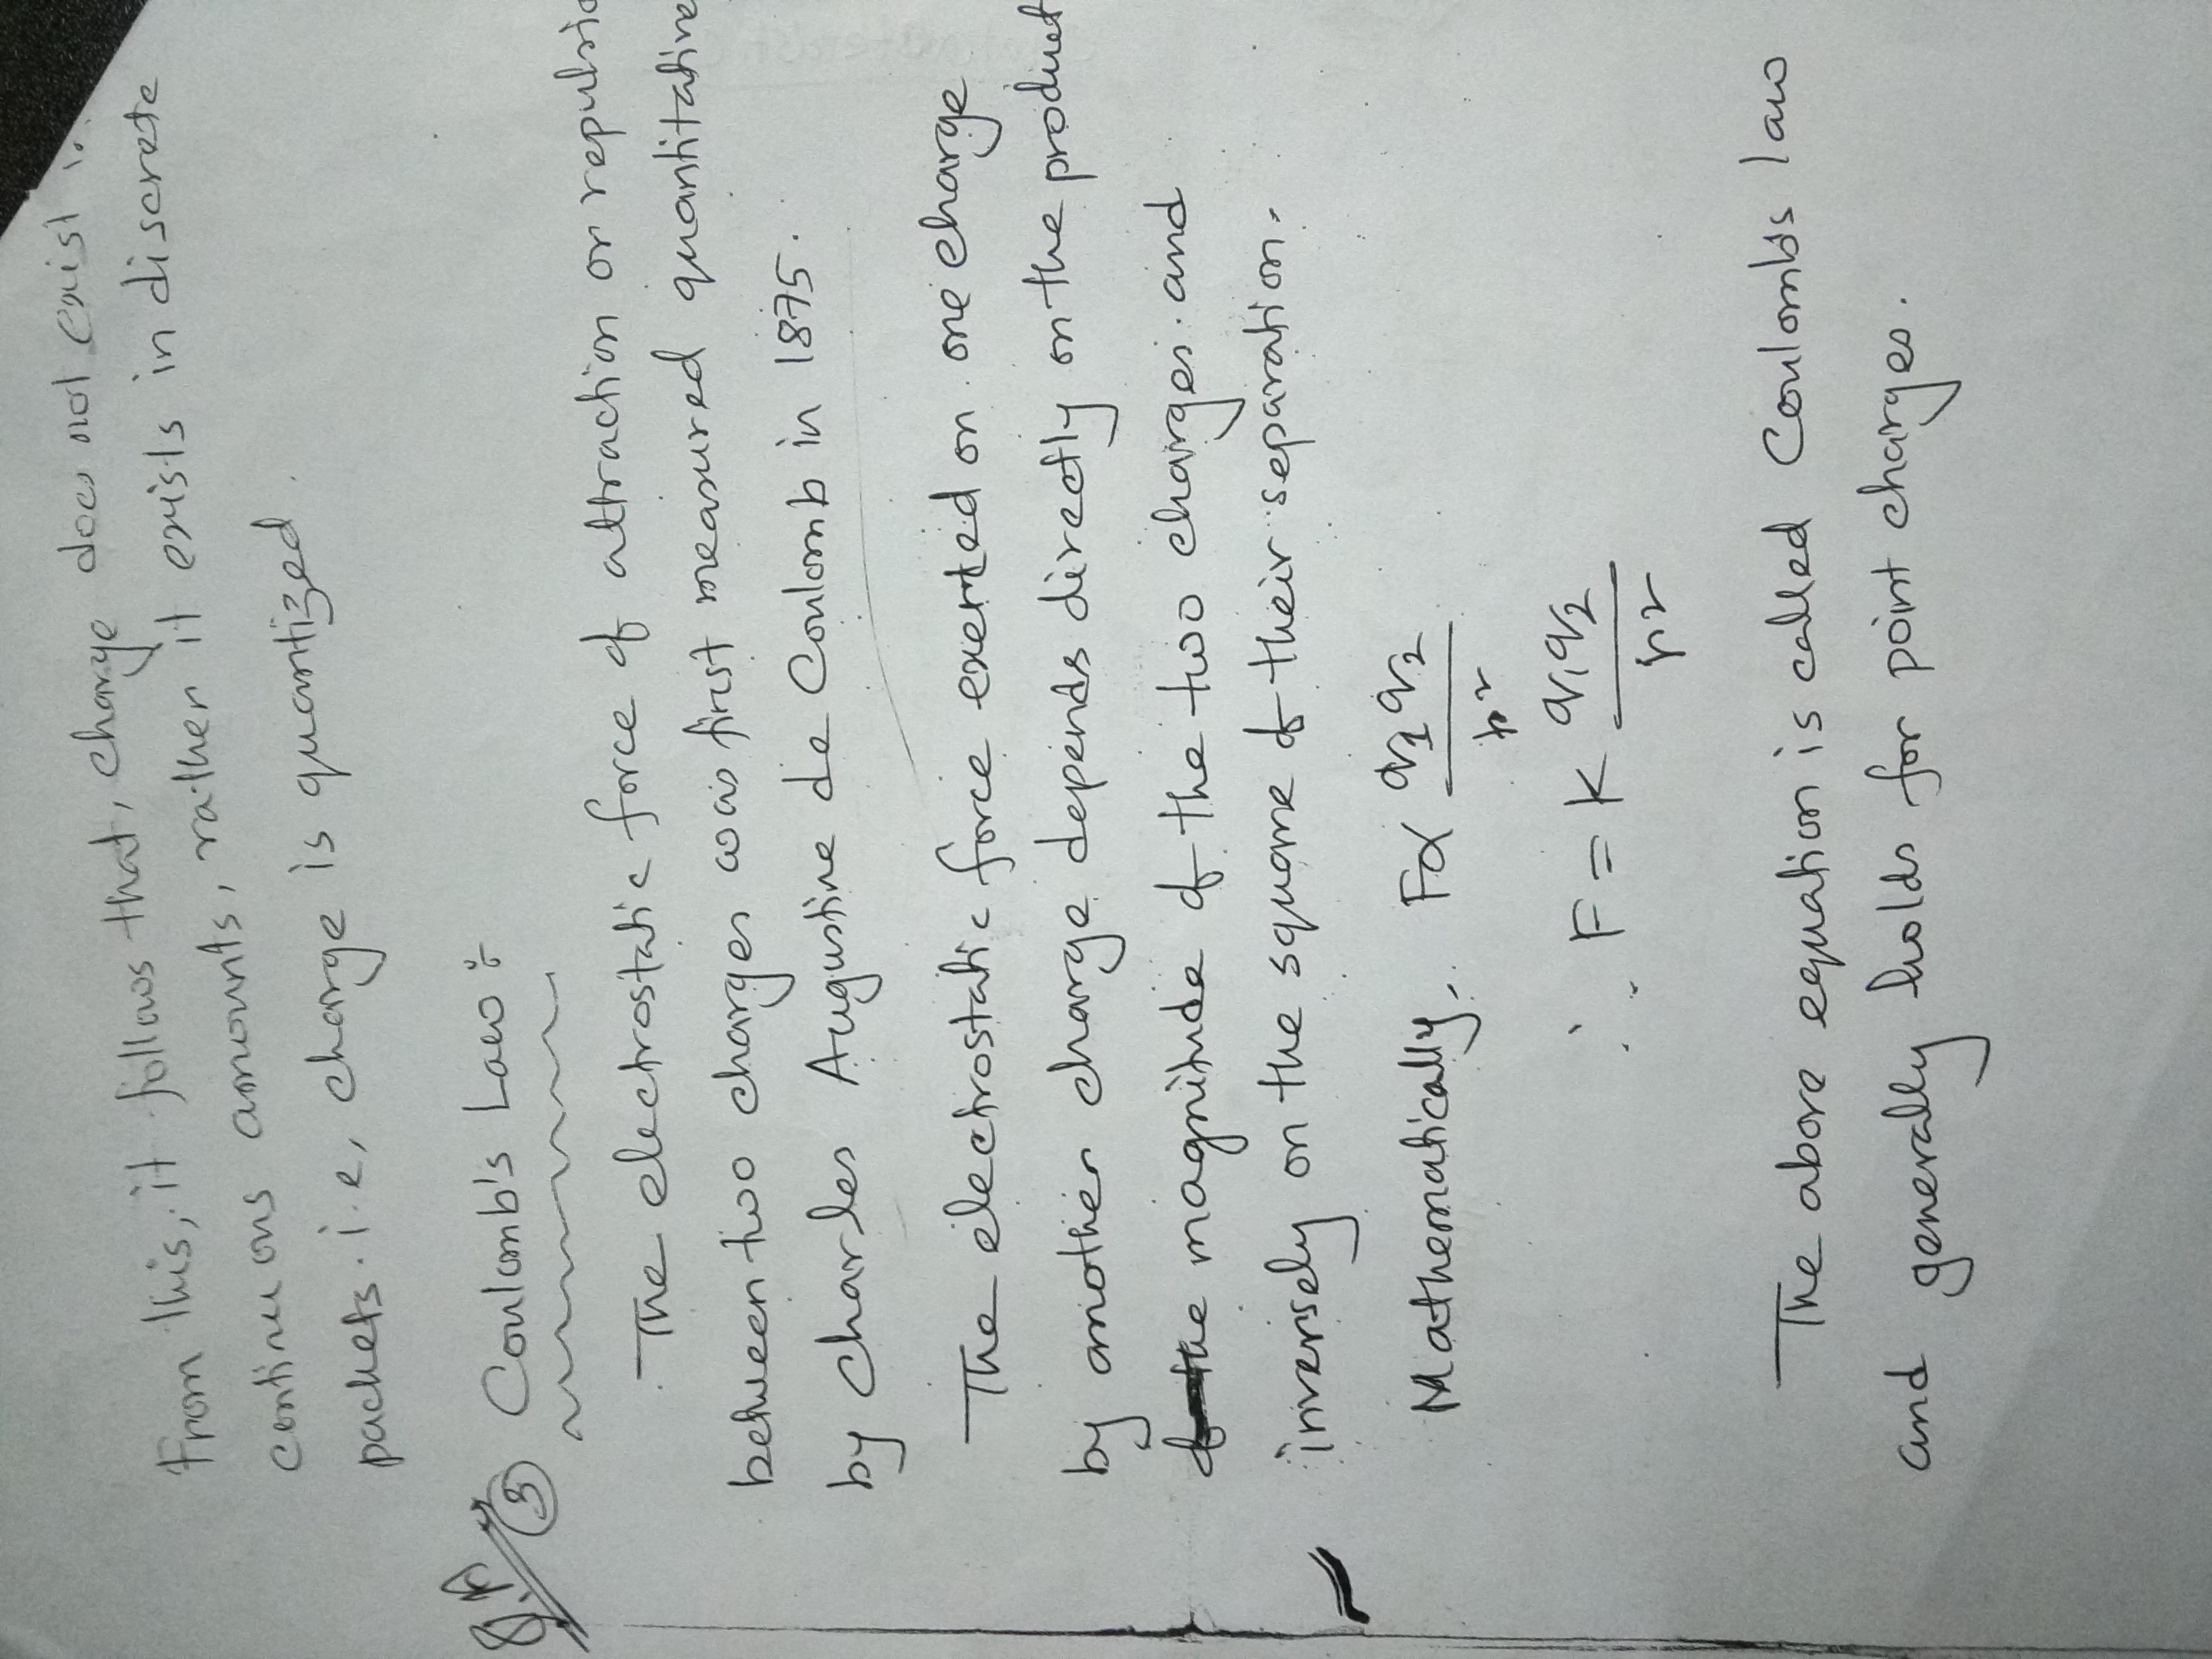 From this, it follows that, charge does not exist in
continuous amounts, rather it exists in discrete
packets. i.e, charge is quantized.
Q.A
③ Coulomb's Law :-
The electrostatic force of attraction or repulsio
between two charges was first measured quantitative
by Charles Augustine de Coulomb in 1875.
The electrostatic force exerted on one charge
by another charge depends directly on the product
of the magnitude of the two charges and
inversely on the square of their separation.
Mathematically, F ∝ q₁q₂ / r²
∴ F = K q₁q₂ / r²
The above equation is called Coulomb's law
and generally holds for point charges.